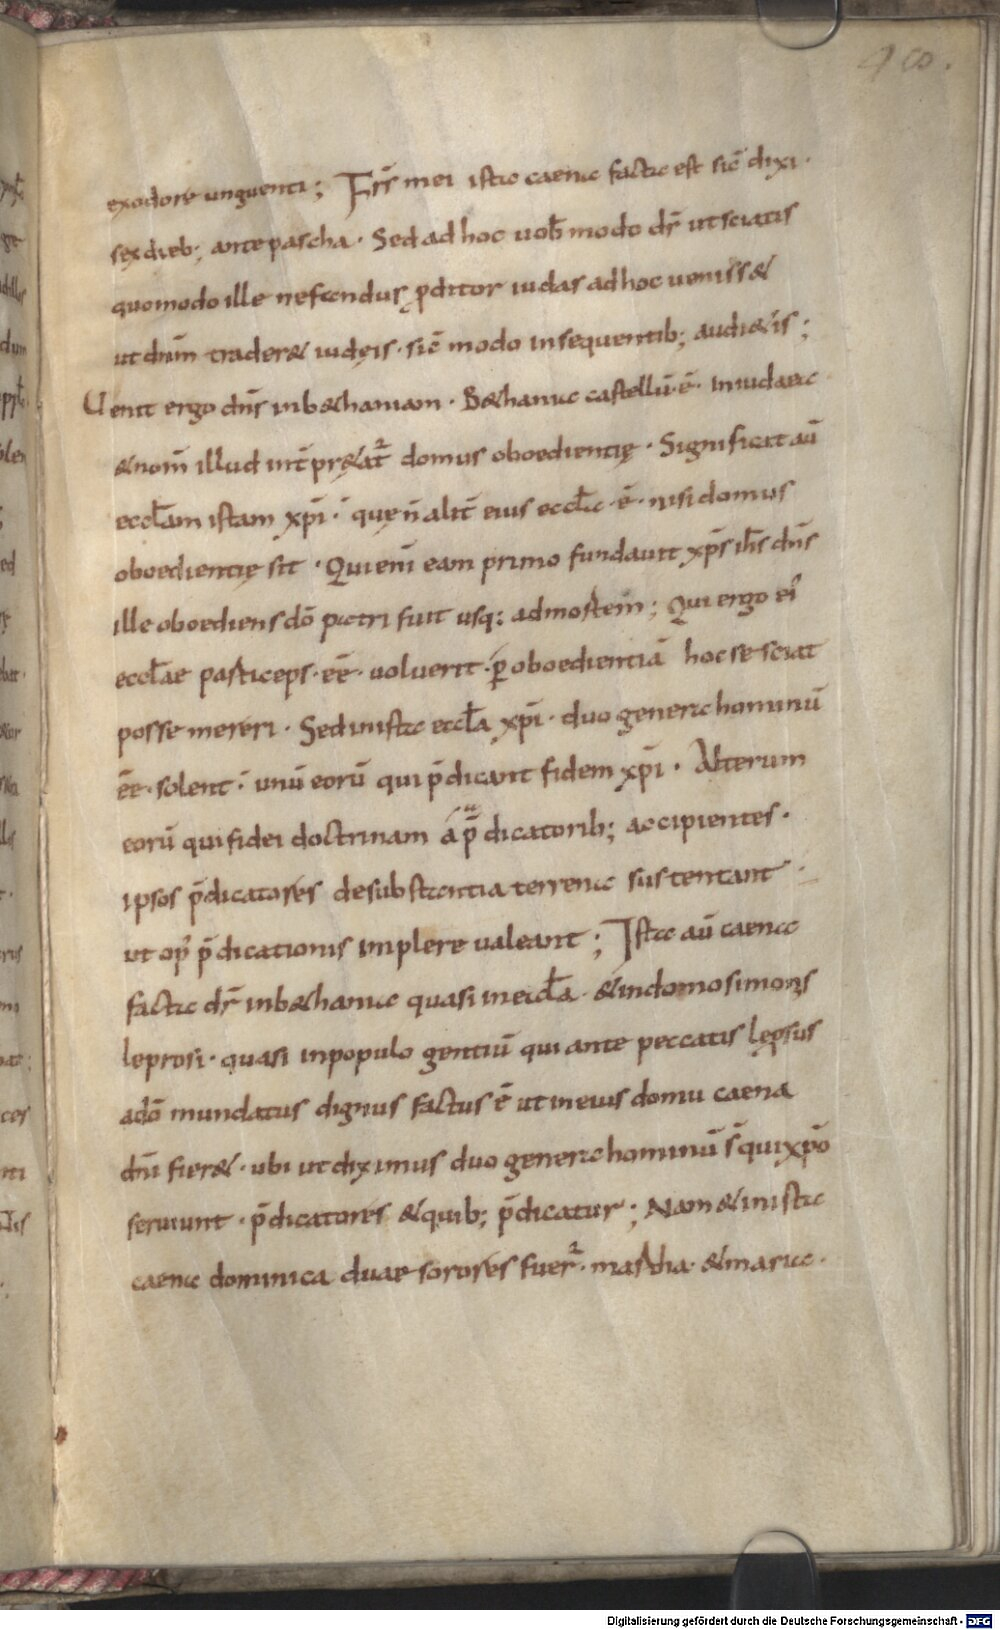 90.
exodore unguenti; Frs̄ mei ista caena facta est sic̄ dixi·
sexdieb; ante pascha· Sed ad hoc uob̄ modo dr̄ ut sciatis
quomodo ille nefandus p̱ditor iudas ad hoc ueniss&
ut dn̄m trader& iudęis· sic̄ modo insequentib; audi&is;
Uenit ergo dn̄s inb&haniam· B&hania castellū·ē· iniudaea
&nom̄ illud int̄pr&at᷑ domus oboedientię· Significat aū
eccl̄am istam xp̄i· quę n̄ alit̄ eius eccl̄a·ē· nisi domus
oboedientię sit· Qui eni̅ eam primo fundauit xp̄s ih̄s dn̄s
ille oboediens dō patri fuit usq; admortem; Qui ergo ei᷒
eccl̄ae particeps·ēē·uoluerit·p̱ oboedientiā hoc se sciat
posse mereri· Sed inista eccl̄a xp̄i· duo genera hominū
ēē·solent· unū eorū qui p̄dicant fidem xp̄i· Alterum
eorū qui fidei doctrinam a p̄dicatorib; accipientes·
ipsos p̄dicatores desubstantia terrena sustentant·
ut op᷒ p̄dicationis implere ualeant; Ista aū caena
facta dr̄ inb&hania quasi ineccl̄a· &indomo simonis
leprosi· quasi inpopulo gentiū qui ante peccatis lępsus
adō mundatus dignus factus ē ut ineius domu caena
dn̄i fier&· ubi ut diximus duo genera hominū s̄ qui xp̄o
seruiunt· p̄dicatores &quib; p̄dicatur; Nam &inista
caena dominica duae sorores fuer᷑· martha· &maria·
Digitalisierung gefördert durch die Deutsche Forschungsgemeinschaft - DFG